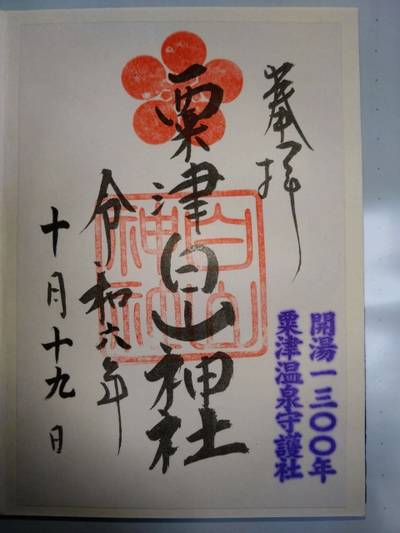 奉拝
粟津白山神社
白山
神社
令和六年
十月十九日
開湯一三〇〇年
粟津温泉守護社